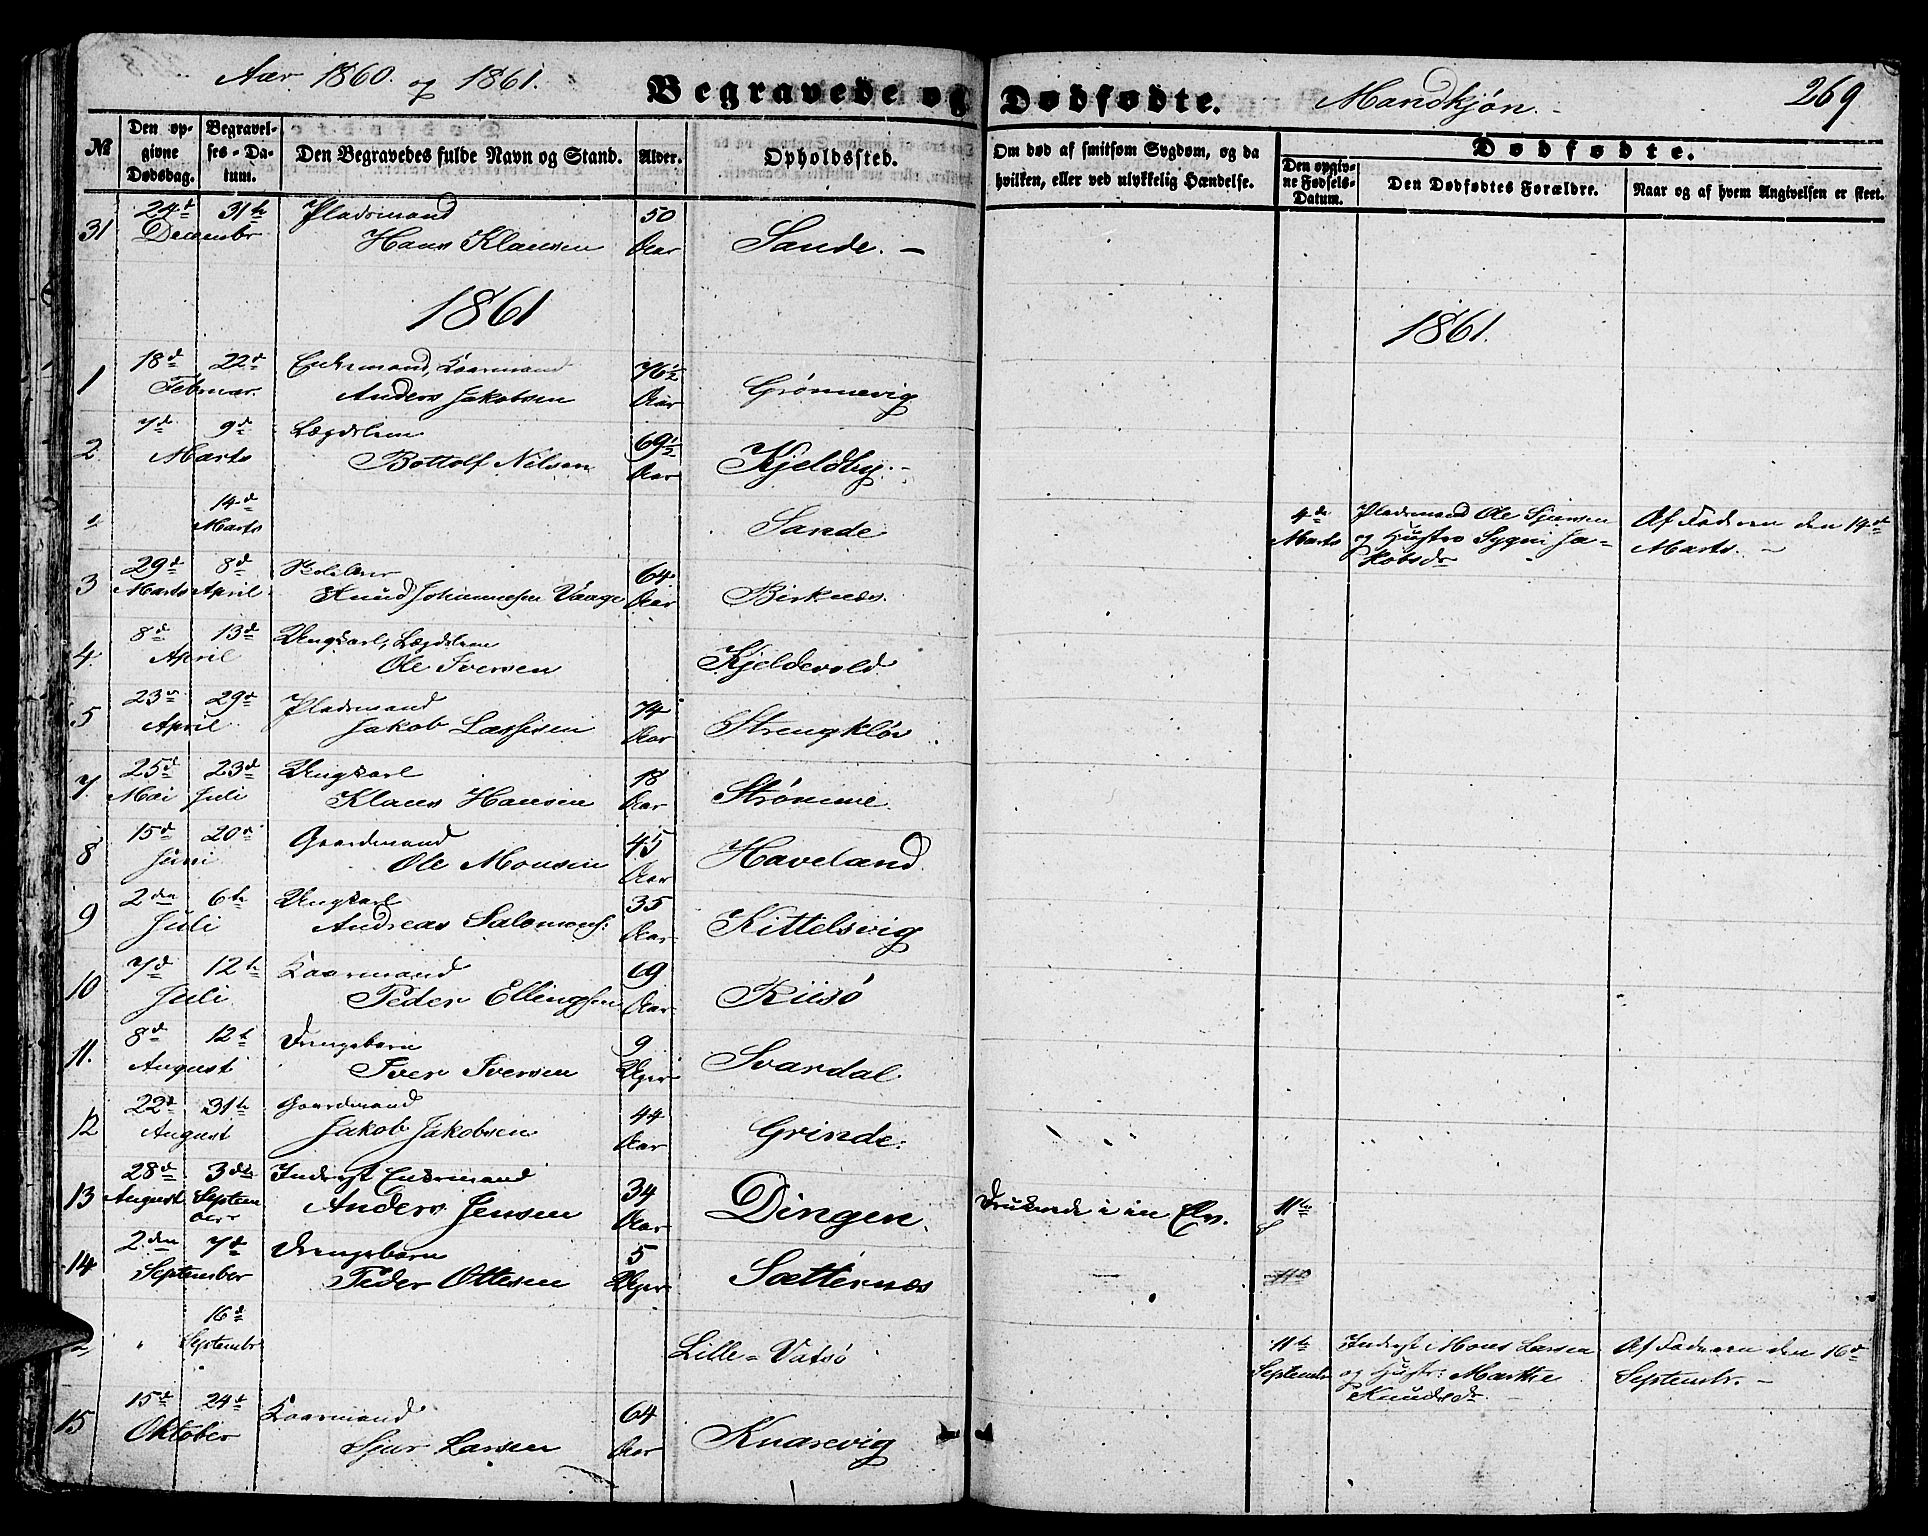 Aar 1860. og 1861.
Begravede og Dødfødte.
Mandkjøn.
269
№
Den opgivne Dødsdag.
Begravelses-Datum.
Den Begravedes fulde Navn og Stand.
Alder.
Opholdssted.
Om død af smitsom Sygdom, og da hvilken, eller ved ulykkelig Hændelse.
Dødfødte.
Den opgivne Fødsels-Datum.
Den Dødfødtes Forældre.
Naar og af hvem Angivelsen er skeet.
31 24de 31te Pladsmand 50
Decembr Hans Klausen Aar Sande.
1861 1861.
1 18de 22de Enkemand, Kaarmand 76½
Februar. Anders Jakobsen Aar Grønnevig
2 7de 9de Lægdslem 69½
Marts Bottolf Nilsen Aar Kjeldby.
1 14de Marts Sande 4de Marts Pladsmand Ole Sjursen Af Faderen den 14de
og Hustro Sygni Ja- Marts.
kobsdr
3 29de 8de Skolelærer 64
Marts April Knud Johannessen Vaage Aar Birknes.
4. 8de 13de Ungkarl, Lægdslem
April Ole Iversen Kjeldevold
5 23de 29de Pladsmand 74
April Jakob Lassesen Aar Strengkløv
7. 25de 23de Ungkarl 18
Mai Juli Klaus Hansen Aar Strømme
8 15de 20de Gaardmand 45
Juni Ole Monsen Aar Haveland
9 2den 6te Ungkarl 35
Juli Andreas Salomons: Aar Kittelsvig
10 7de 12te Kaarmand 69
Juli. Peder Ellingsen Aar Riisø
11. 8de 12te Drengebarn 9
August Iver Iversen Uger Svardal.
12 22de 31te Gaardmand 44
August Jakob Jakobsen Aar Grinde.
13 28de 3die Inderst Enkemand 34
August Septem Anders Jensen Aar Dingen. Druknede i en Elv. 11te
ber
14 2den 7de Drengebarn 5
September Peder Ottesen Uger Sætternes
2 " 16de Septembr Lille-Vatsø 11te Septembr Inderst Mons Larsen Af Faderen den 16de
og Hustr: Marthe Septembr.
Knudsdr.
15 15de 24de Kaarmand 64
Oktober Sjur Larsen Aar Knarevig